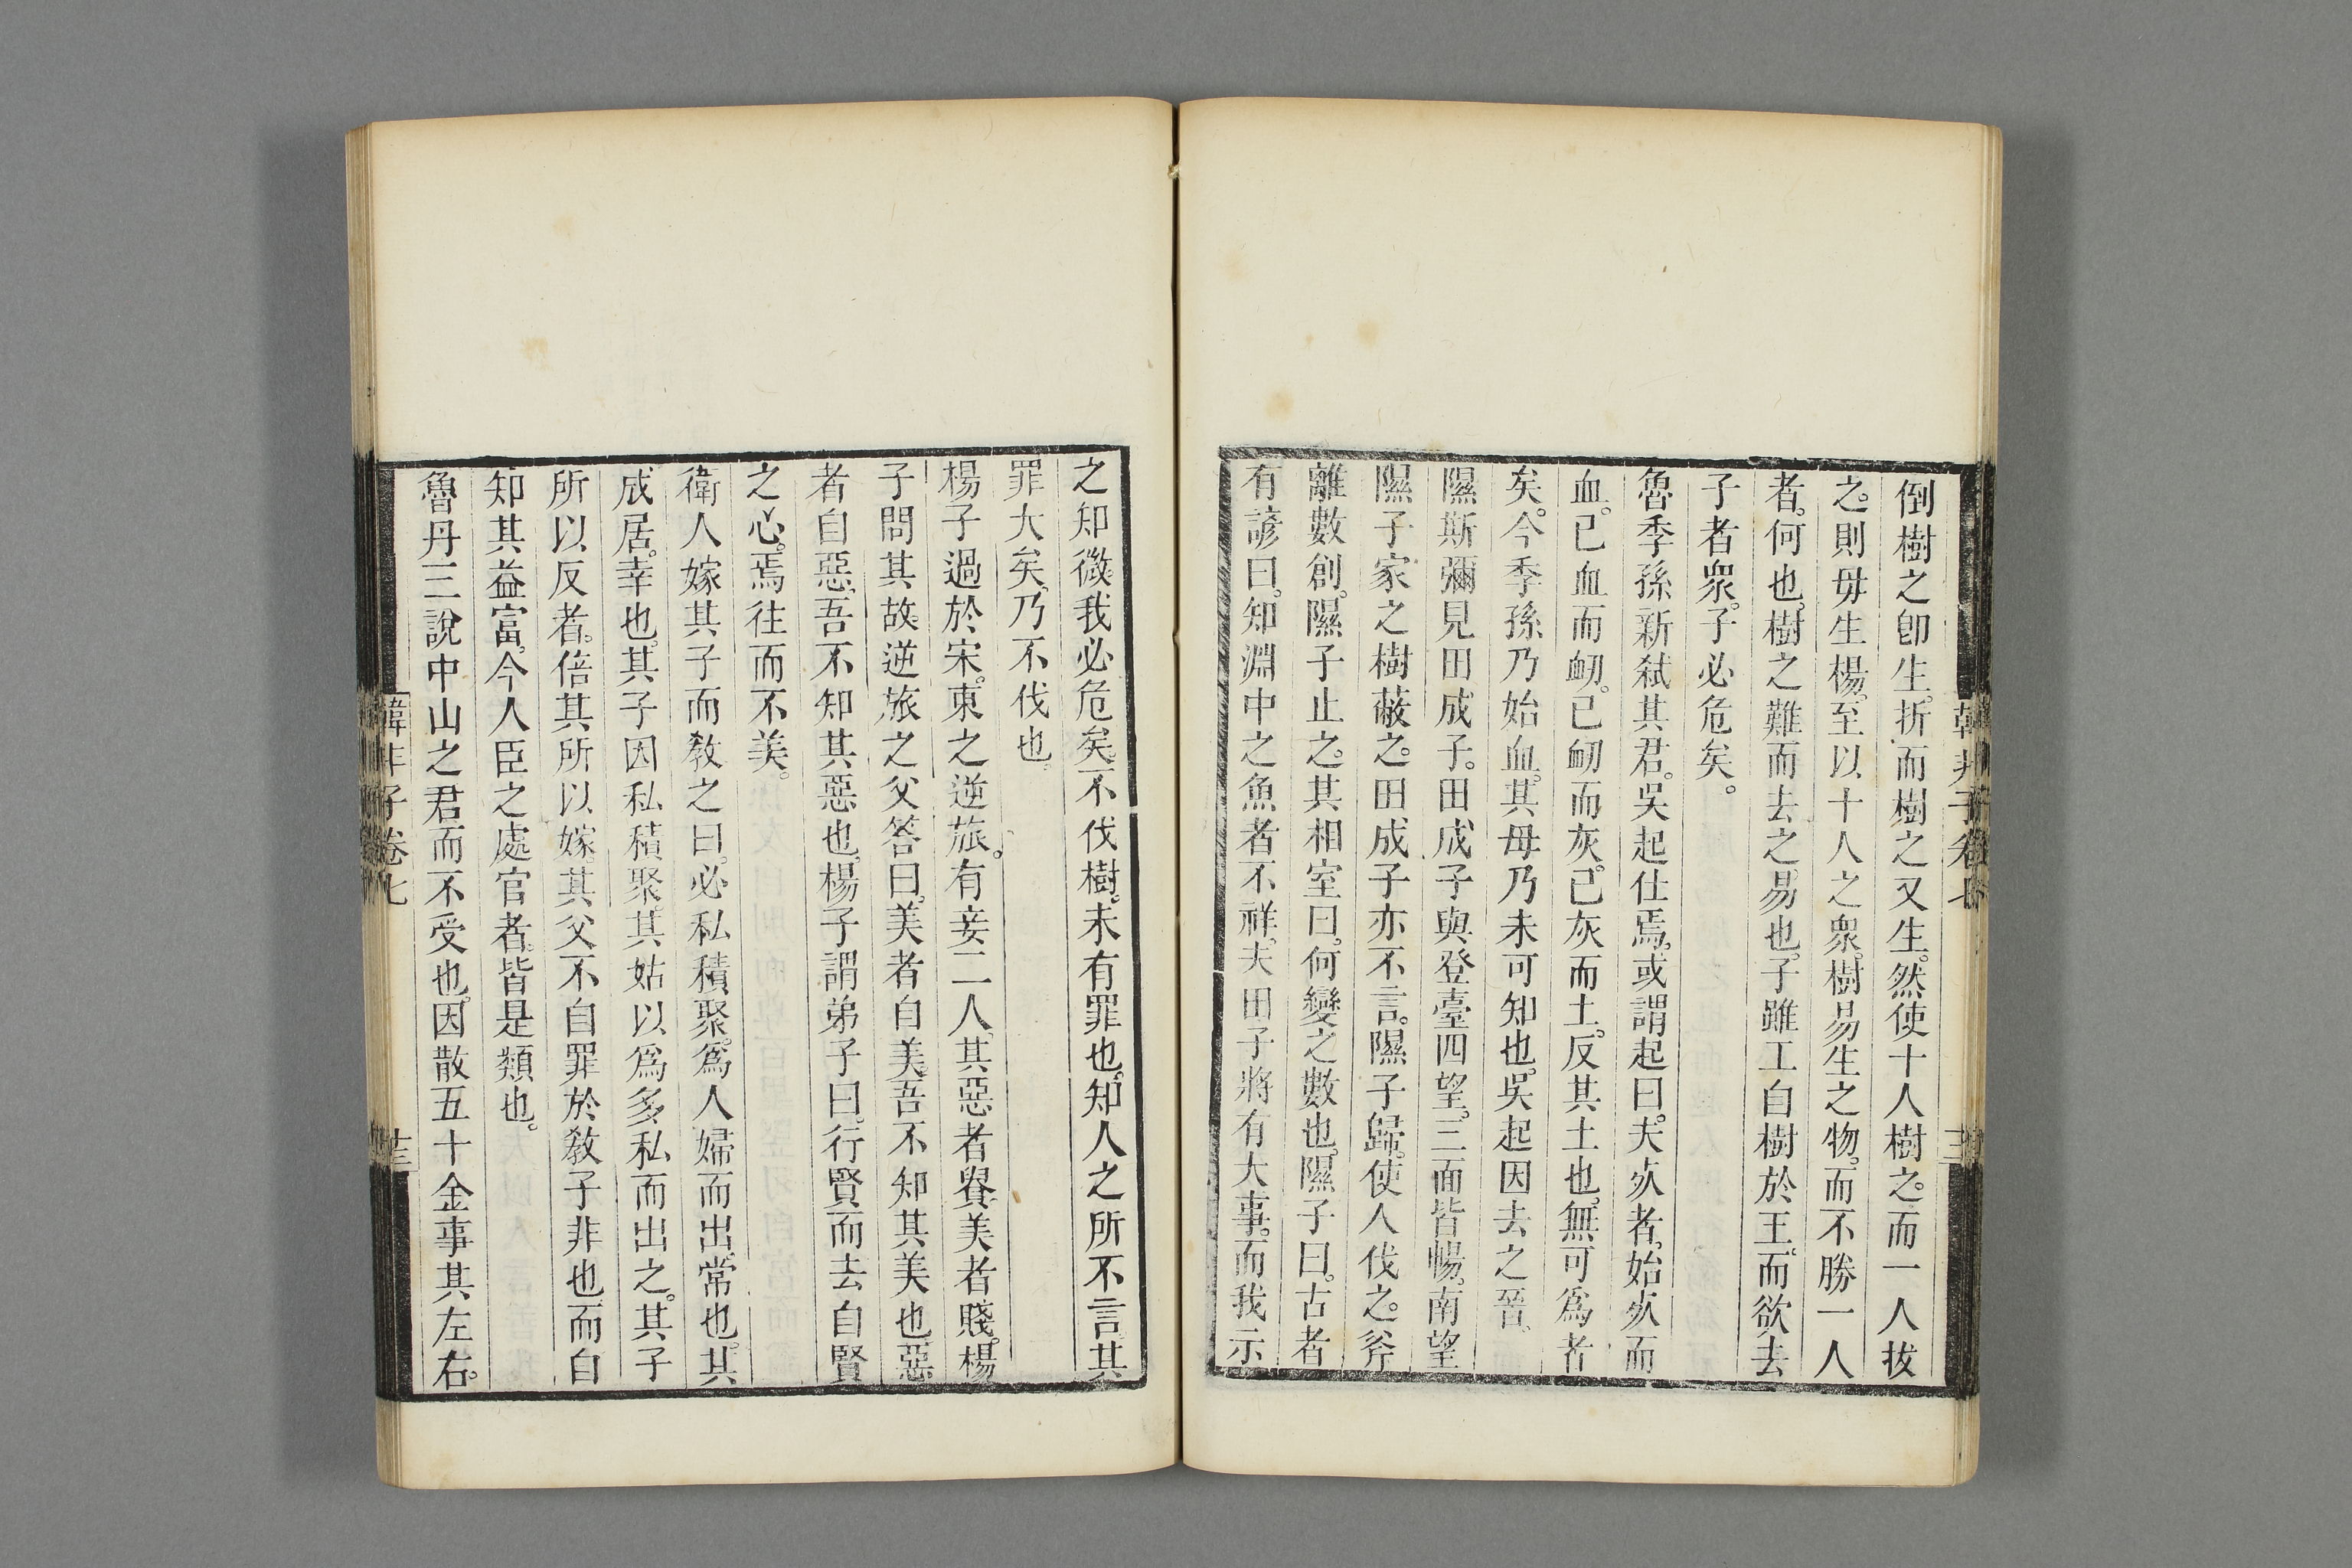 倒樹之卽生。折而樹之又生。然使十人樹之。而一人拔
之。則毋生楊。至以十人之衆。樹易生之物。而不勝一人
者。何也。樹之難而去之易也。子雖工自樹於王。而欲去
子者衆。子必危矣。
魯季孫新弑其君。吳起仕焉。或謂起曰。夫𣦸者。始𣦸而
血。已血而衂。已衂而灰。已灰而土。反其土也。無可爲者
矣。今季孫乃始血。其母乃未可知也。吳起因去之晉。
隰斯彌見田成子。田成子與登臺四望。三面皆暢。南望
隰子家之樹蔽之。田成子亦不言。隰子歸。使人伐之。斧
離數創。隰子止之。其相室曰。何變之數也。隰子曰。古者
有諺曰。知淵中之魚者不祥。夫田子將有大事。而我示
韓非子卷七
之知微。我必危矣。不伐樹。未有罪也。知人之所不言。其
罪大矣。乃不伐也。
楊子過於宋。東之逆旅。有妾二人。其惡者貴。美者賤。楊
子問其故。逆旅之父答曰。美者自美。吾不知其美也。惡
者自惡。吾不知其惡也。楊子謂弟子曰。行賢而去自賢
之心。焉往而不美。
衛人嫁其子而敎之曰。必私積聚。爲人婦而出。常也。其
成居。幸也。其子因私積聚。其姑以爲多私而出之。其子
所以反者。倍其所以嫁。其父不自罪於敎子非也。而自
知其益富。今人臣之處官者。皆是類也。
魯丹三說中山之君而不受也。因散五十金事其左右。
韓非子卷七